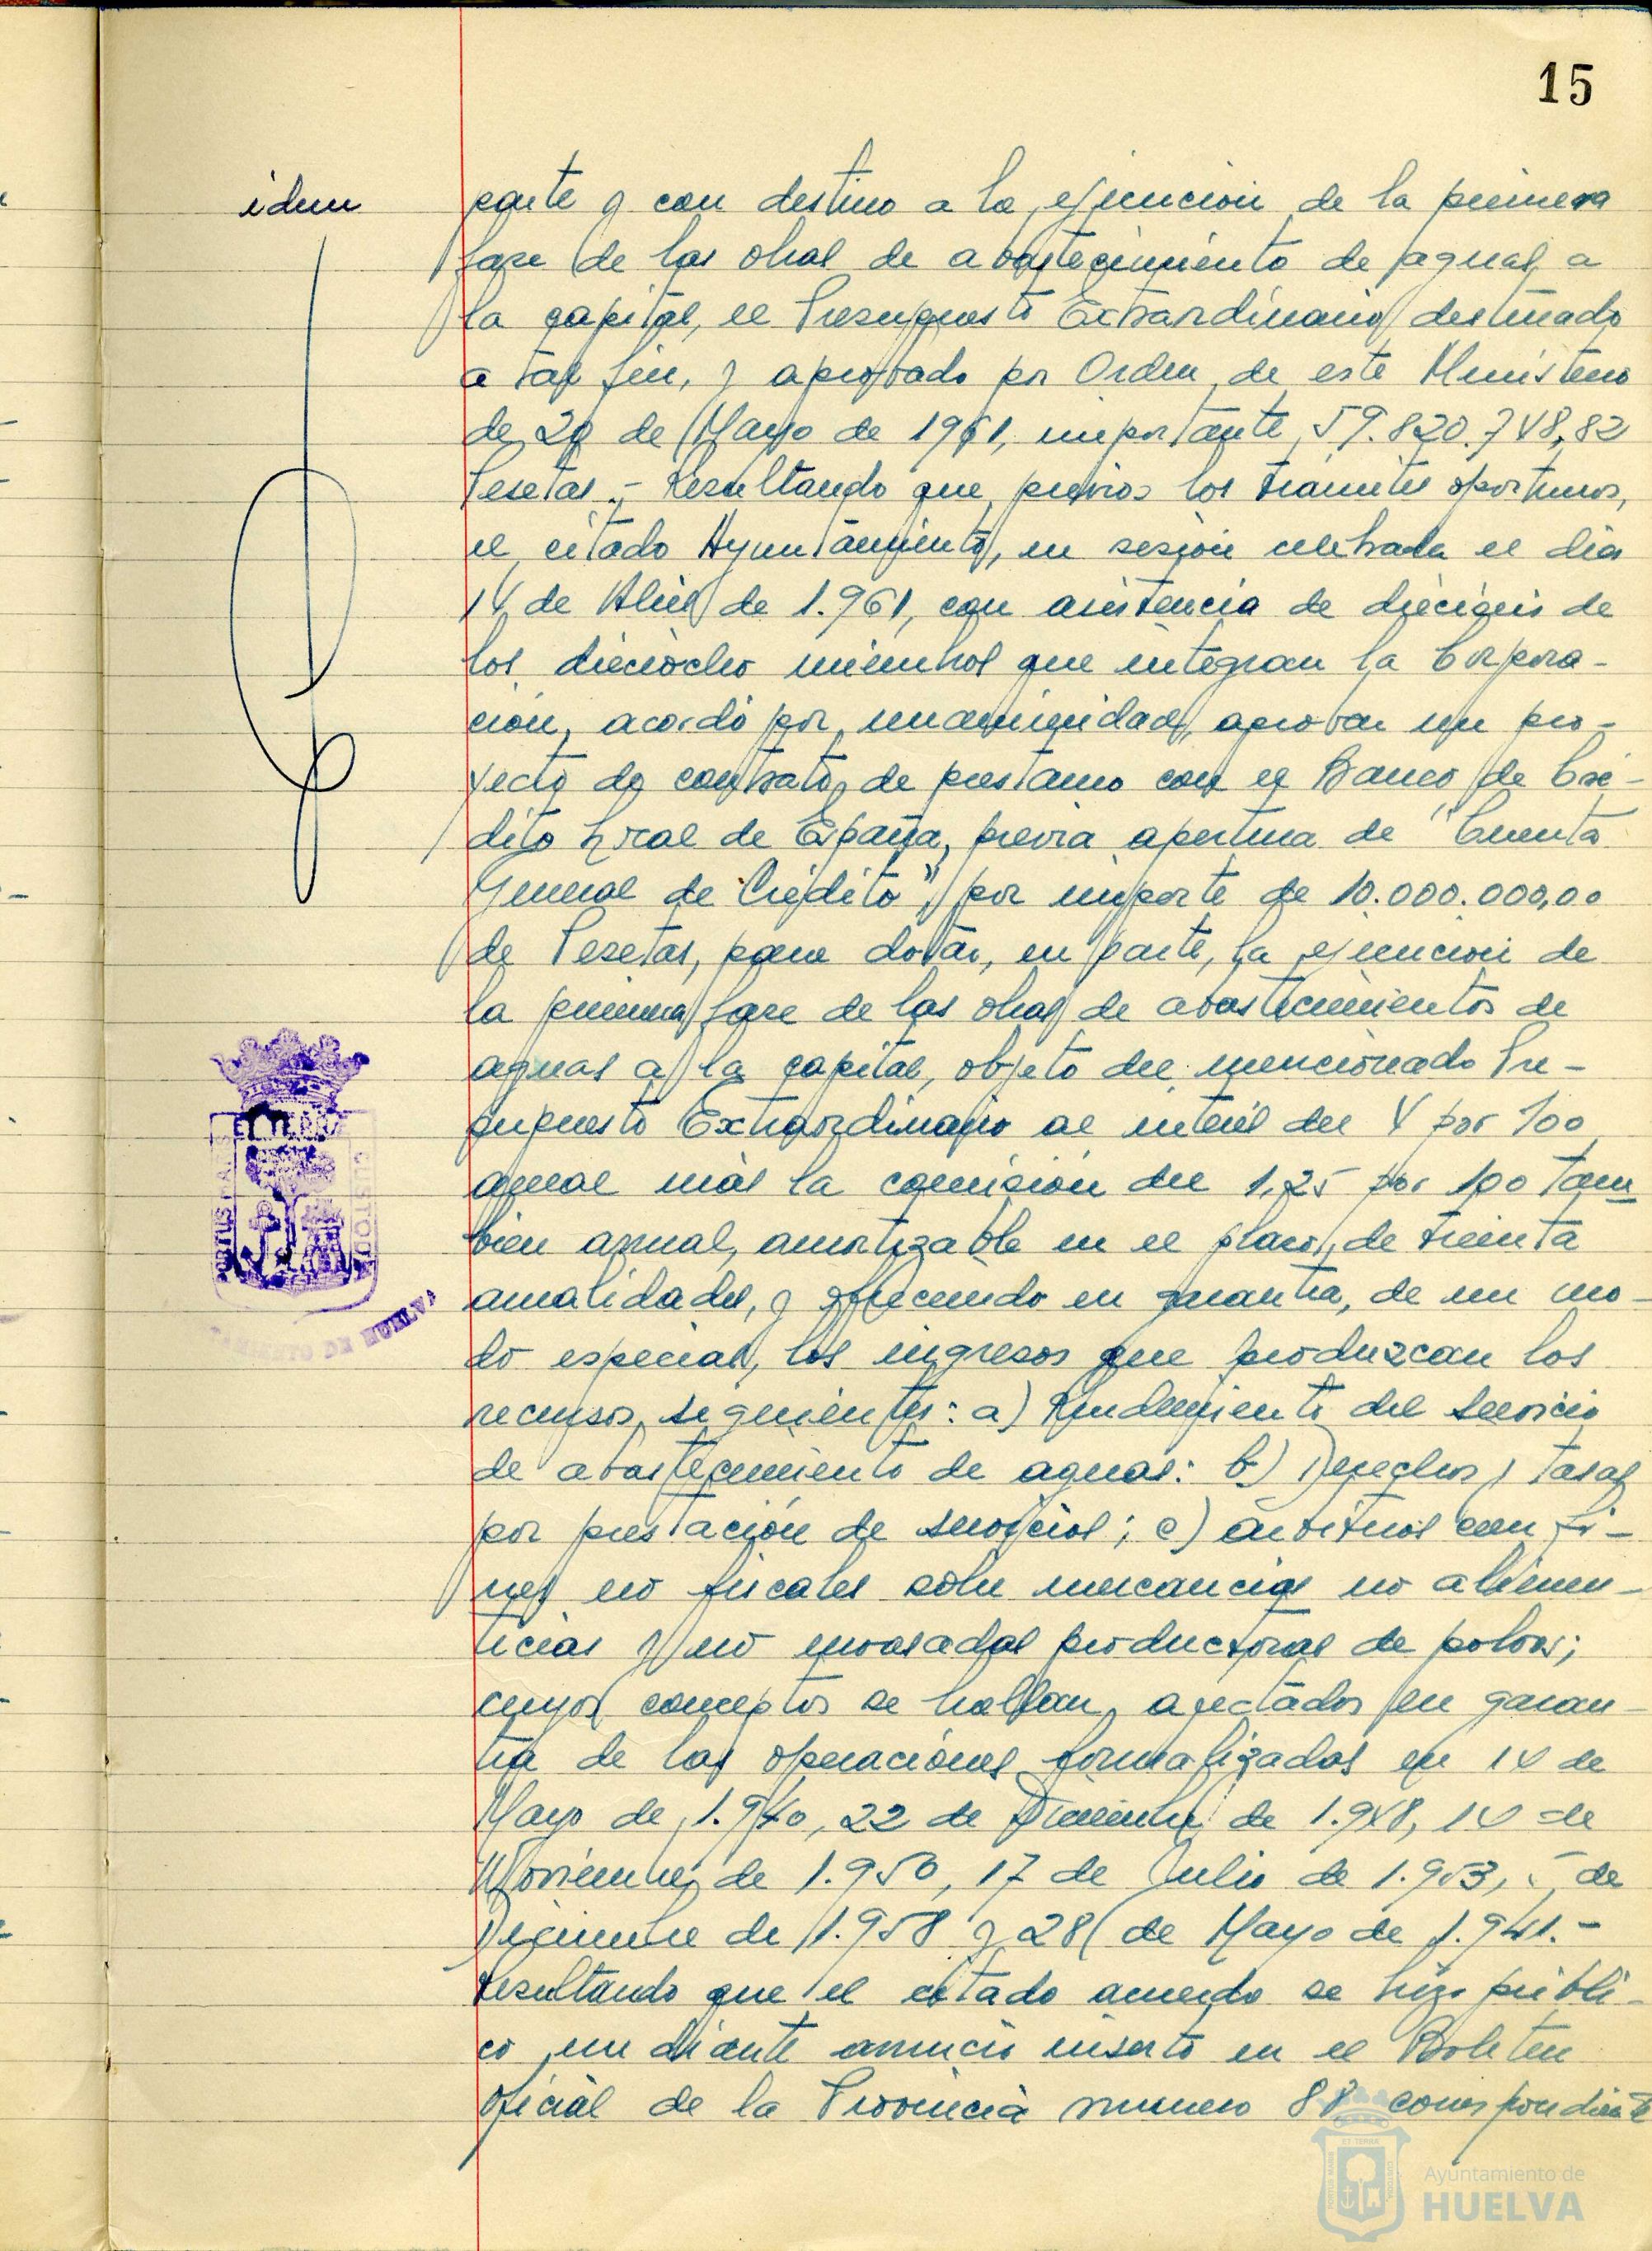 15
idem
parte y con destino a la ejecución de la primera
fase de las obras de abastecimiento de aguas a
la capital, el Presupuesto Extraordinario destinado
a tal fin, y aprobado por Orden de este Ministerio
de 20 de Mayo de 1961, importante 59.820.748,82
Pesetas.- Resultando que, previos los trámites oportunos,
el citado Ayuntamiento, en sesión celebrada el día
14 de Abril de 1.961, con asistencia de dieciseis de
los dieciocho miembros que integran la Corpora-
ción, acordó por unanimidad, aprobar un pro-
yecto de contrato de prestamo con el Banco de Cré-
dito Local de España, previa apertura de "Cuenta
General de Crédito", por importe de 10.000.000,00
de Pesetas, para dotar, en parte, la ejecución de
la primera fase de las obras de abastecimientos de
aguas a la capital, objeto del mencionado Pre-
supuesto Extraordinario al interés del 4 por 100
anual más la comisión del 1,25 por 100 tam
bien anual, amortizable en el plazo de treinta
anualidades, y ofreciendo en garantia, de un mo-
do especial, los ingresos que produzcan los
recursos siguientes: a) Rendimiento del servicio
de abastecimiento de aguas: b) Derechos y tasas
por prestación de servicios; c) arbitrios con fi-
nes no fiscales sobre mercancias no alimen-
ticias y no envasadas productoras de polvos;
cuyos conceptos se hallan afectados en garan-
tia de las operaciones formalizadas en 14 de
Mayo de 1.940, 22 de Diciembre de 1.948, 14 de
Noviembre de 1.950, 17 de Julio de 1.953, 5 de
Diciembre de 1.958 y 28 de Mayo de 1.941.-
Resultando que el citado acuerdo se hizo públi-
co mediante anuncio inserto en el Boletin
Oficial de la Provincia numero 88 correspondiente
PORTUS MARIS
ET TERRAE
CUSTODIA
TAMIENTO DE HUELVA
Ayuntamiento de
HUELVA